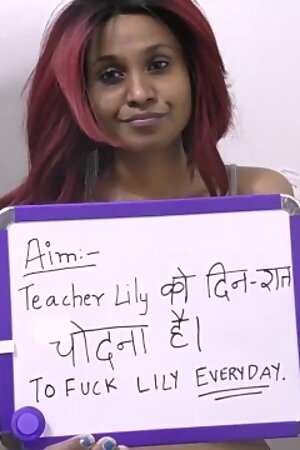 Aim:-
Teacher Lily को दिन-रात
चोदना है।
TO FUCK LILY EVERYDAY.